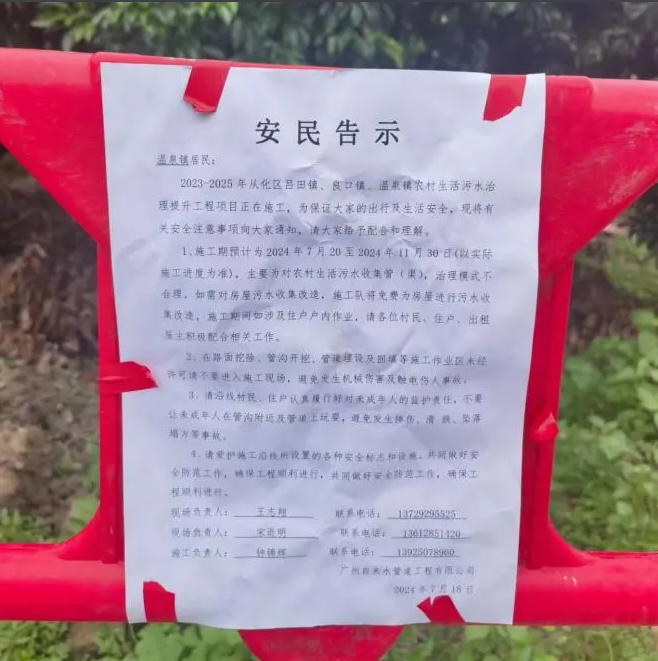 安民告示
温泉镇居民：
2023-2025 年从化区吕田镇、良口镇、温泉镇农村生活污水治
理提升工程项目正在施工，为保证大家的出行及生活安全，现将有
关安全注意事项向大家通知，请大家给予配合和理解。
1、施工期预计为 2024 年 7 月 20 至 2024 年 11 月 30 日(以实际
施工进度为准)，主要为对农村生活污水收集管（渠），治理模式不
合理，如需对房屋污水收集改造，施工队将免费为房屋进行污水收
集改造，施工期间如涉及住户户内作业，请各位村民、住户、出租
屋主积极配合相关工作。
2、在路面挖除、管沟开挖、管道埋设及回填等施工作业区未经
许可请不要进入施工现场，避免发生机械伤害及触电伤人事故。
3、请沿线村民、住户认真履行好对未成年人的监护责任，不要
让未成年人在管沟附近及管道上玩耍，避免发生摔伤、滑跌、坠落
塌方等事故。
4、请爱护施工沿线所设置的各种安全标志和设施，共同做好安
全防范工作，确保工程顺利进行，共同做好安全防范工作，确保工
程顺利进行。
现场负责人：王志翔 联系电话：13729295525
现场负责人：宋 明 联系电话：13612851420
施工负责人：钟锦辉 联系电话：13925078960
广州自来水管道工程有限公司
2024 年 7 月 18 日